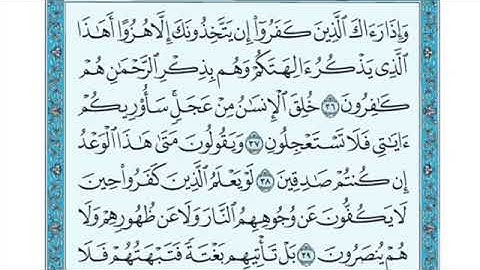 وَإِذَا رَءَاكَ ٱلَّذِينَ كَفَرُوٓا۟ إِن يَتَّخِذُونَكَ إِلَّا هُزُوًا أَهَٰذَا
ٱلَّذِى يَذْكُرُ ءَالِهَتَكُمْ وَهُم بِذِكْرِ ٱلرَّحْمَٰنِ هُمْ
كَٰفِرُونَ ٣٦ خُلِقَ ٱلْإِنسَٰنُ مِنْ عَجَلٍ ۚ سَأُو۟رِيكُمْ
ءَايَٰتِى فَلَا تَسْتَعْجِلُونِ ٣٧ وَيَقُولُونَ مَتَىٰ هَٰذَا ٱلْوَعْدُ
إِن كُنتُمْ صَٰدِقِينَ ٣٨ لَوْ يَعْلَمُ ٱلَّذِينَ كَفَرُوا۟ حِينَ
لَا يَكُفُّونَ عَن وُجُوهِهِمُ ٱلنَّارَ وَلَا عَن ظُهُورِهِمْ وَلَا
هُمْ يُنصَرُونَ ٣٩ بَلْ تَأْتِيهِم بَغْتَةً فَتَبْهَتُهُمْ فَلَا